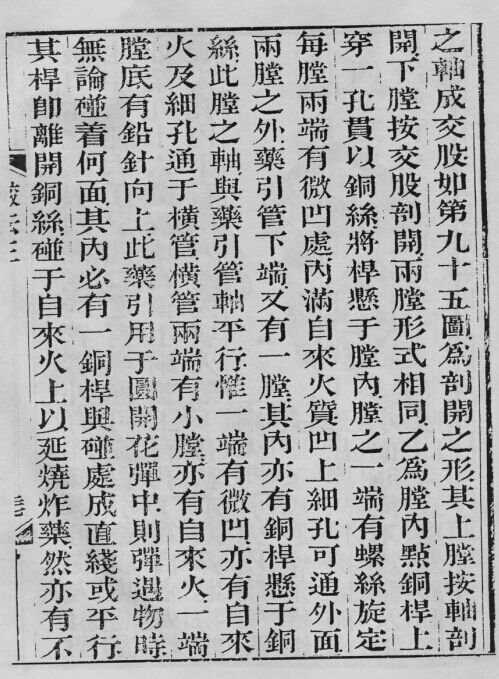 之軸成交股如第九十五圖爲剖開之形其上膛按軸剖
開下膛按交股剖開兩膛形式相同乙爲膛內㸃銅桿上
穿一孔貫以銅絲將桿懸于膛內膛之一端有螺絲旋定
每膛兩端有微凹處內滿自來火質凹上細孔可通外面
兩膛之外藥引管下端又有一膛其內亦有銅桿懸于銅
絲此膛之軸與藥引管軸平行惟一端有微凹亦有自來
火及細孔通于橫管橫管兩端有小膛亦有自來火一端
膛底有鉛針向上此藥引用于圓開花彈中則彈遇物時
無論碰着何面其內必有一銅桿與碰處成直綫或平行
其桿卽離開銅絲碰于自來火上以延燒炸藥然亦有不